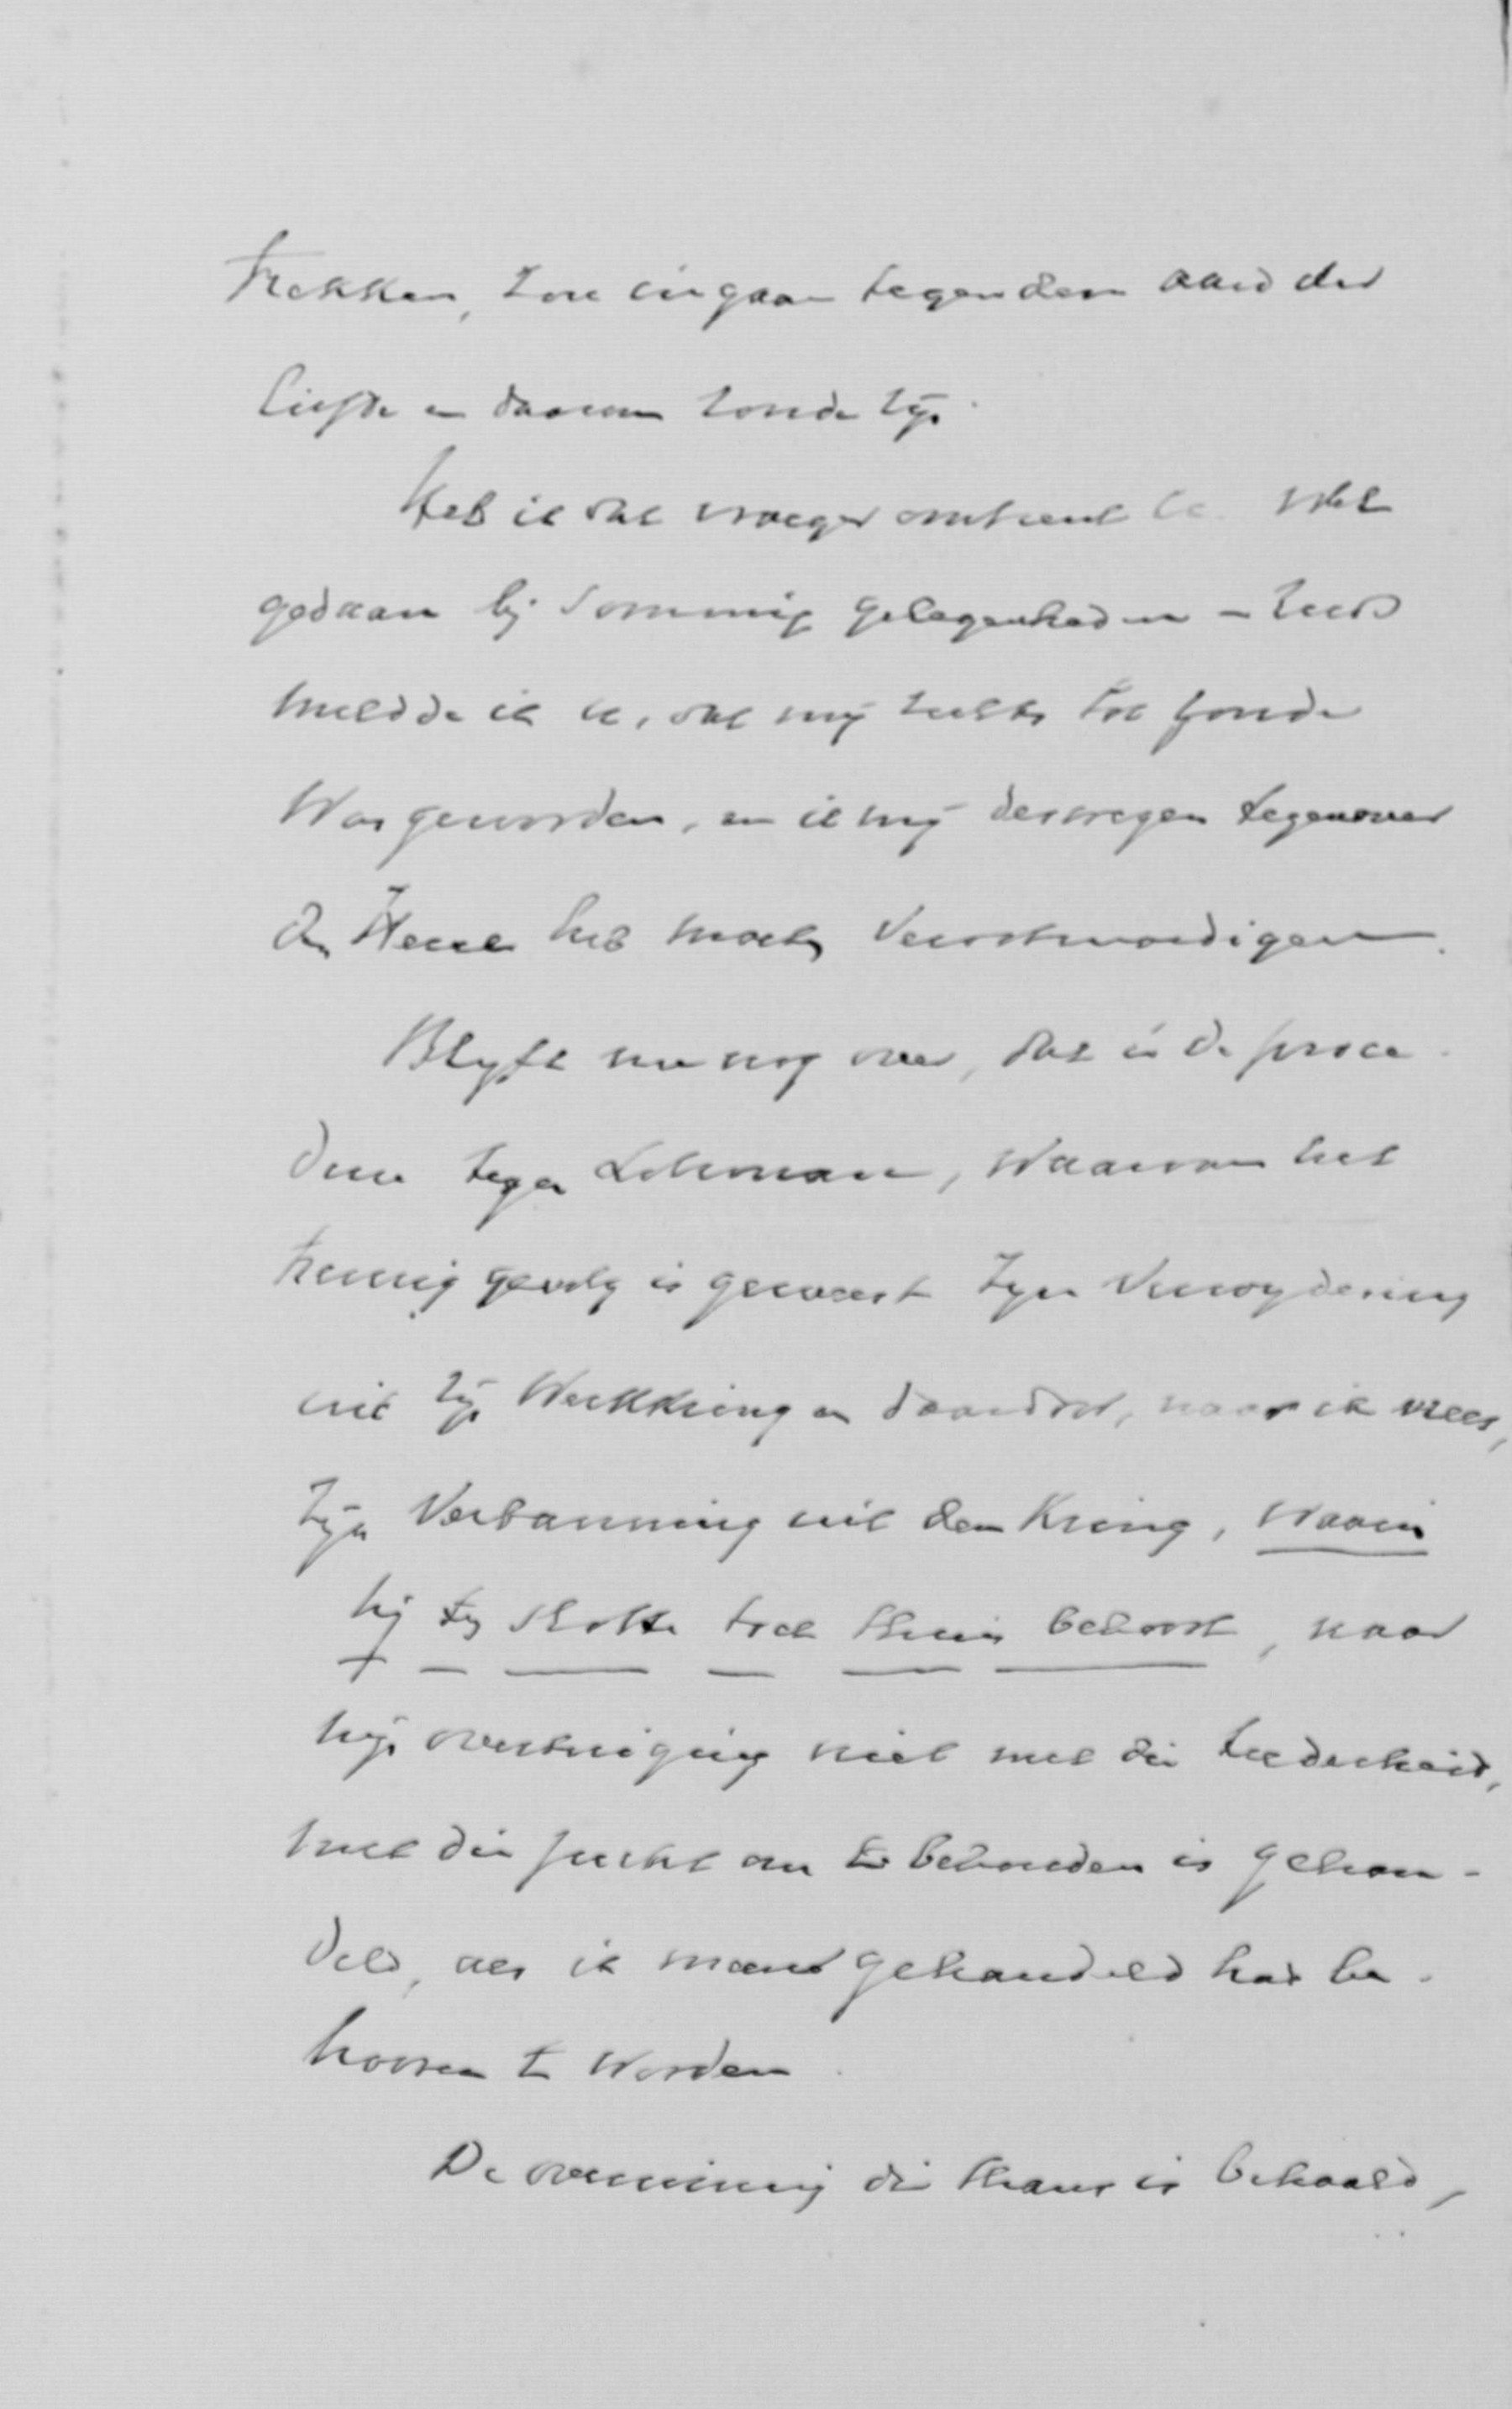 trekken, zou ingaan tegen den aard der
liefde en daarom zonde zijn.
Heb ik dat vroeger omtrent U wel
gedaan bij sommige gelegenheden – reeds
meldde ik U, dat mij zulks tot zonde
was geworden, en ik mij deswegen tegenover
den Heere heb moeten verootmoedigen.
Blyft nu nog over, dat in de proce-
dure tegen Lohman, waarvan het
treurig gevolg is geweest zyn verwydering
uit zijn werkkring en daardoor, naar ik vrees,
zijn verbanning uit den kring, waarin
hij ten slotte toch thuis behoort, naar
mijn overtuiging niet met die teederheid,
met die zucht om te behouden is gehan-
deld, als ik meende gehandeld had be-
hooren te worden.
De overwinning die thans is behaald,